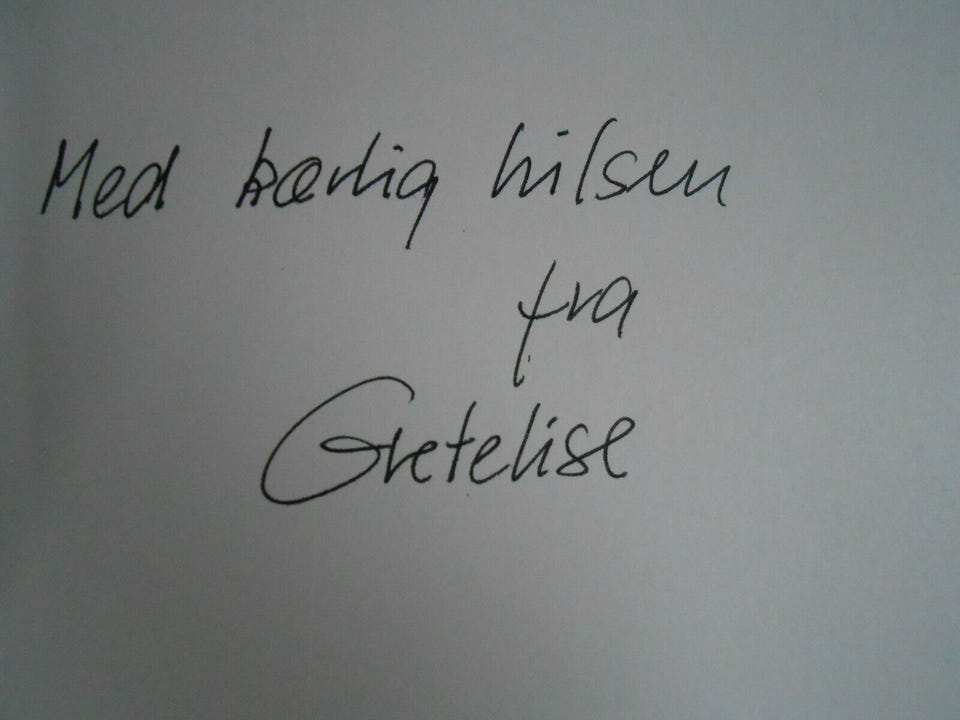 Med kærlig hilsen
fra
Gretelise